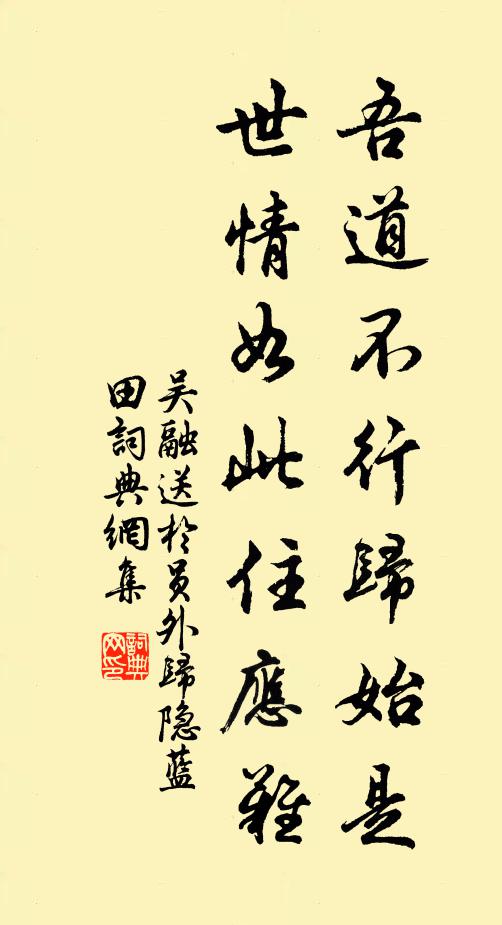 吾道不行歸始是
世情如此住應難
吴融送於員外歸隐藍
田詞典網集
詞典網印